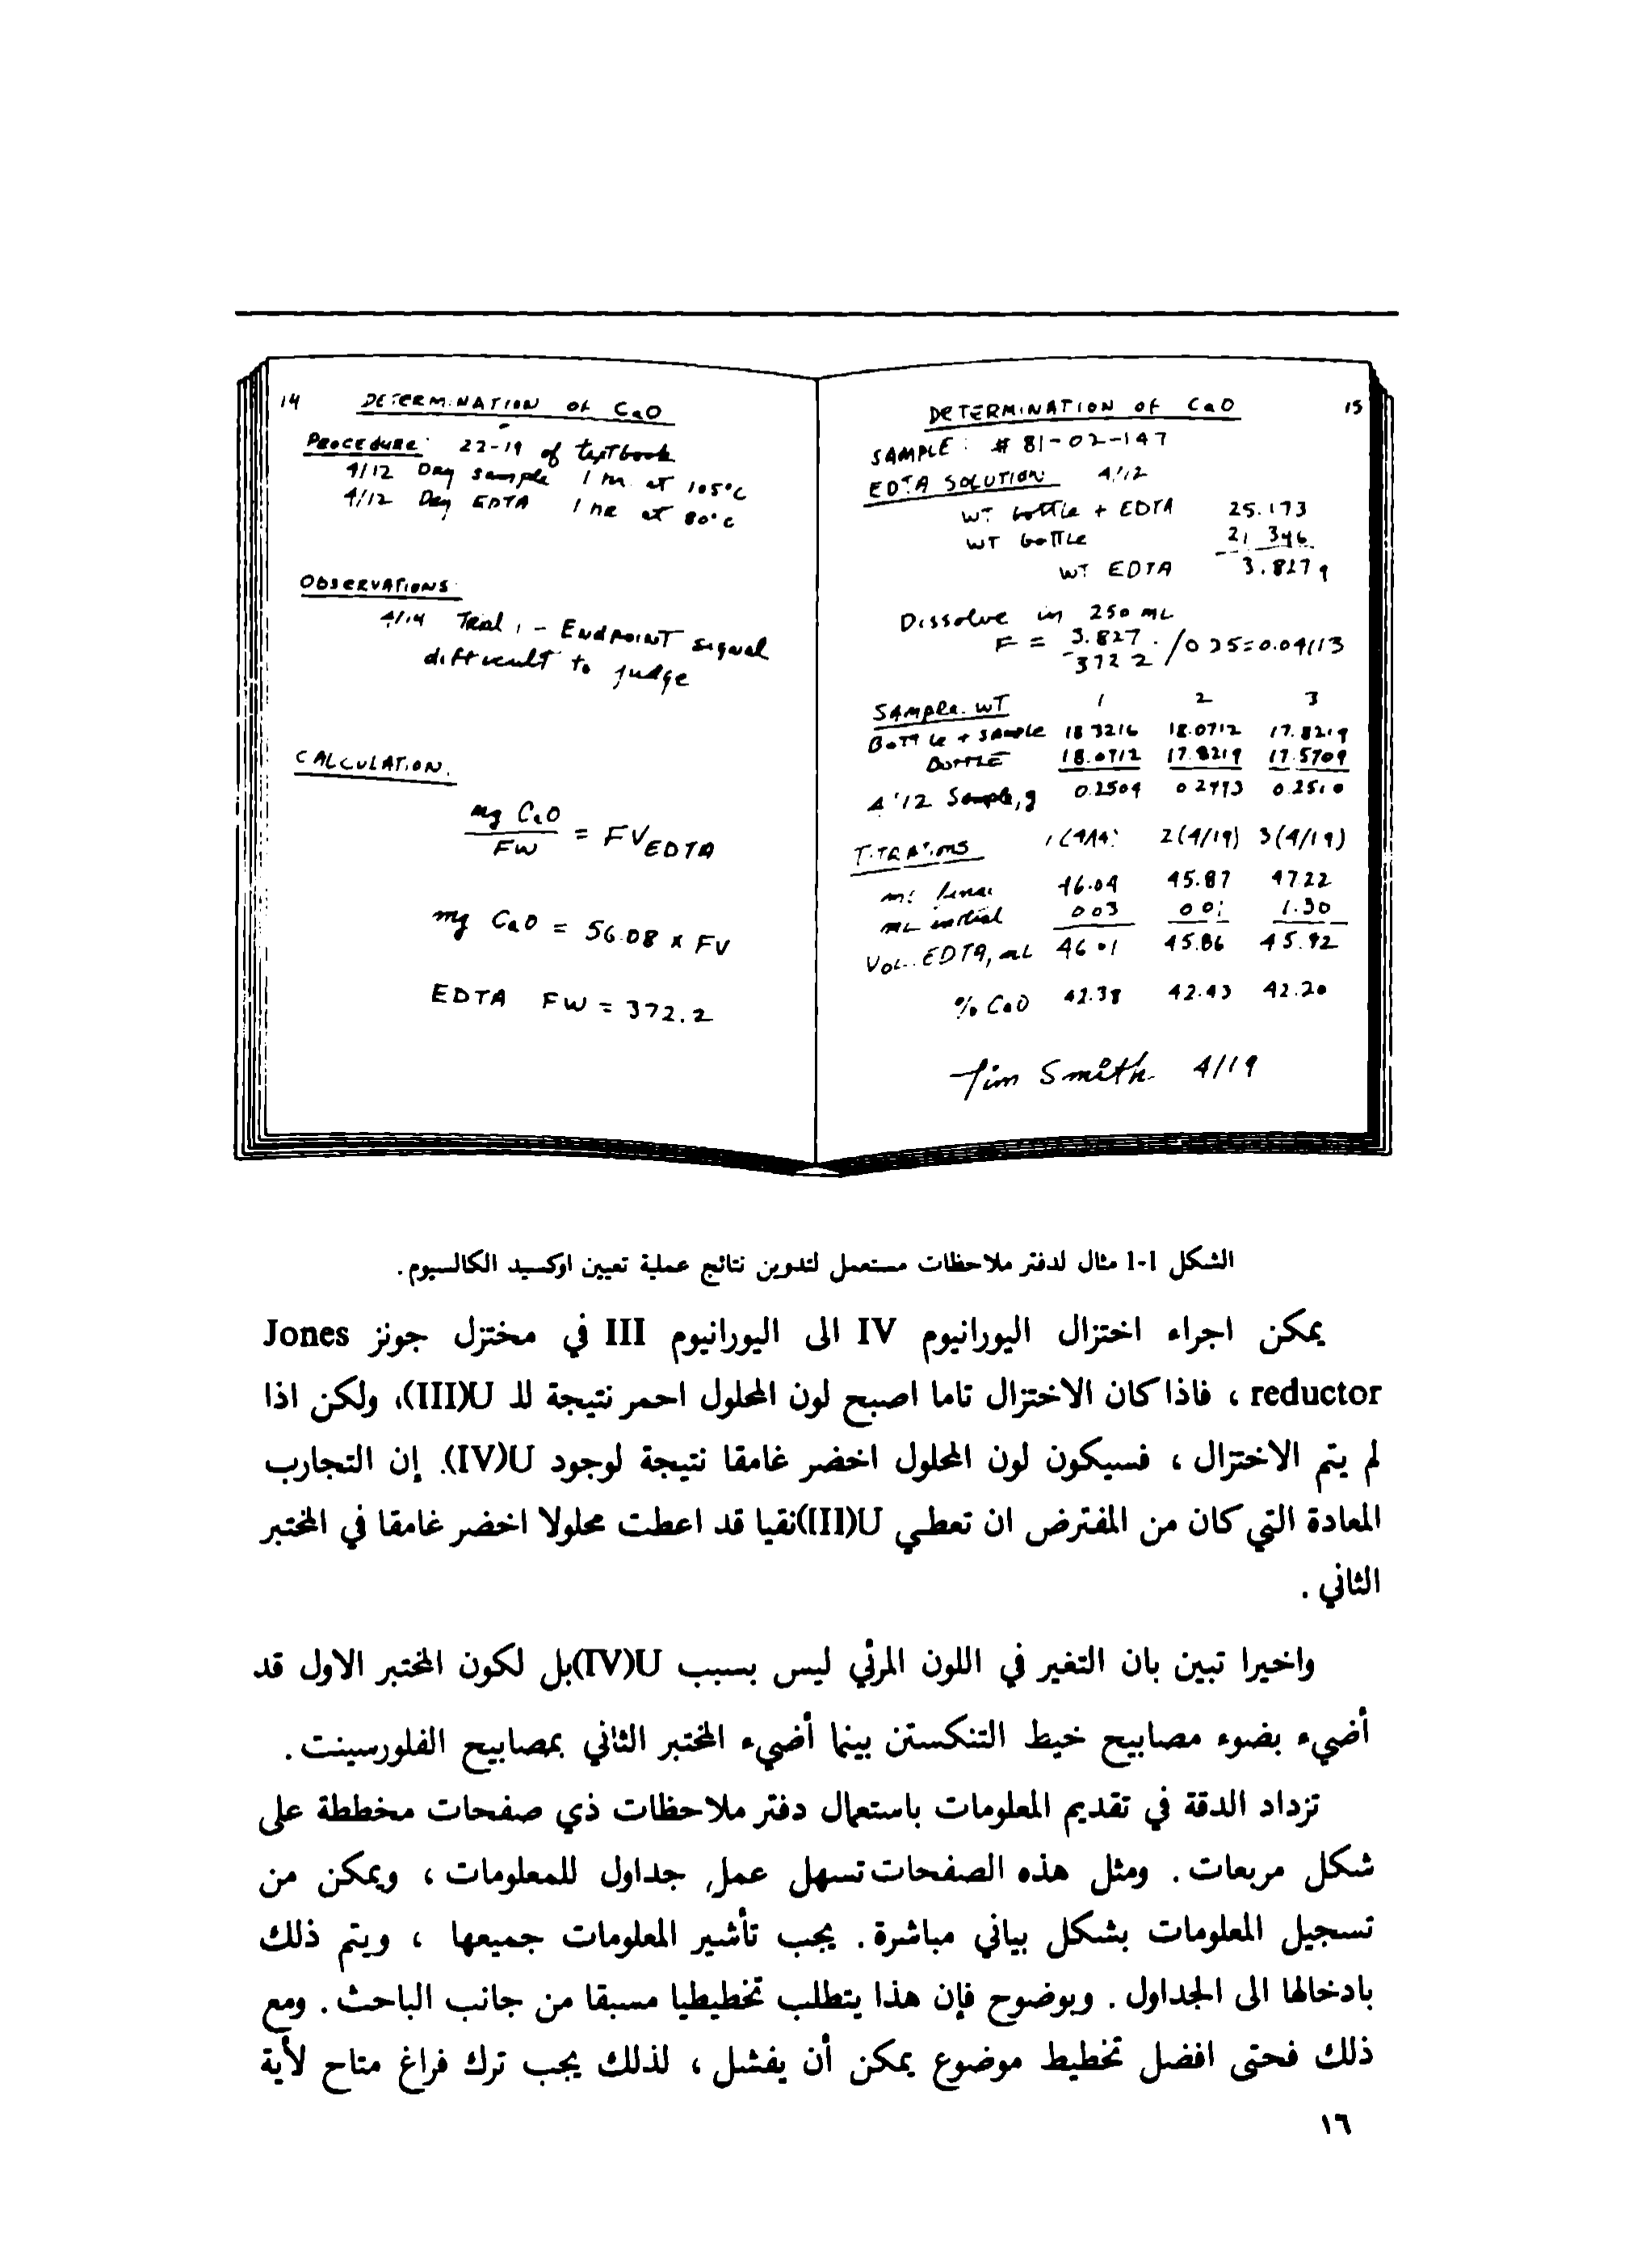 14 DETERMINATION OF CaO
PROCEDURE: 22-19 of textbook
4/12 Dry sample 1 hr at 105°C
4/12 Dry EDTA 1 hr at 80°C
OBSERVATIONS:
4/14 Trial 1 - ENDPOINT signal
difficult to judge
CALCULATION.
mg CaO
FW = FV EDTA
mg CaO = 56.08 x FV
EDTA FW = 372.2
DETERMINATION OF CaO 15
SAMPLE: # 81-02-147
EDTA SOLUTION 4/12
WT bottle + EDTA 25.173
WT bottle 21 346
WT EDTA 3.827 g
Dissolve in 250 mL
F = 3.827 / 0 25 = 0.04113
372 2
SAMPLE WT 1 2 3
Bottle + sample 18 3216 18.0712 17.8219
BOTTLE 18.0712 17.8219 17.5709
4/12 Sample, g 0.2504 0 2493 0.2510
TITRATIONS 1 (4/14) 2 (4/19) 3 (4/19)
mL final 46.04 45.87 47 22
mL initial 0 03 0 01 1.30
VOL. EDTA, mL 46 01 45.86 45.92
% CaO 42.38 42.43 42.20
Tim Smith 4/19
الشكل 1-1 مثال لدفتر ملاحظات مستعمل لتدوين نتائج عملية تعيين اوكسيد الكالسيوم .
يمكن اجراء اختزال اليورانيوم IV الى اليورانيوم III في مختزل جونز Jones
reductor ، فاذا كان الاختزال تاما اصبح لون المحلول احمر نتيجة للـ U(III)، ولكن اذا
لم يتم الاختزال ، فسيكون لون المحلول اخضر غامقا نتيجة لوجود U(IV). إن التجارب
المعادة التي كان من المفترض ان تعطي U(III)نقيا قد اعطت محلولا اخضر غامقا في المختبر
الثاني .
واخيرا تبين بان التغير في اللون المرئي ليس بسبب U(IV)بل لكون المختبر الاول قد
أضيء بضوء مصابيح خيط التنكستن بينما أضيء المختبر الثاني بمصابيح الفلورسينت .
تزداد الدقة في تقديم المعلومات باستعمال دفتر ملاحظات ذي صفحات مخططة على
شكل مربعات . ومثل هذه الصفحات تسهل عمل جداول للمعلومات ، ويمكن من
تسجيل المعلومات بشكل بياني مباشرة . يجب تأشير المعلومات جميعها ، ويتم ذلك
بادخالها الى الجداول . وبوضوح فإن هذا يتطلب تخطيطيا مسبقا من جانب الباحث . ومع
ذلك فحتى افضل تخطيط موضوع يمكن أن يفشل ، لذلك يجب ترك فراغ متاح لأية
١٦